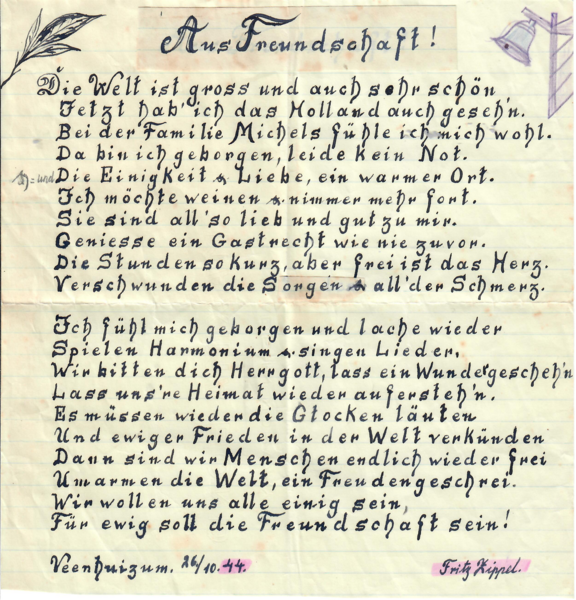 Aus Freundschaft!
Die Welt ist gross und auch sehr schön
Jetzt hab' ich das Holland auch geseh'n.
Bei der Familie Michels fühle ich mich wohl.
Da bin ich geborgen, leide kein Not.
Die Einigkeit & Liebe, ein warmer Ort.
Ich möchte weinen & nimmer mehr fort.
Sie sind all' so lieb und gut zu mir.
Geniesse ein Gastrecht wie nie zuvor.
Die Stunden so kurz, aber frei ist das Herz.
Verschwunden die Sorgen & all' der Schmerz.
Ich fühl mich geborgen und lache wieder
Spielen Harmonium & singen Lieder.
Wir bitten dich Herrgott, lass ein Wunder gescheh'n
Lass uns're Heimat wieder aufersteh'n.
Es müssen wieder die Glocken läuten
Und ewiger Frieden in der Welt verkünden
Dann sind wir Menschen endlich wieder frei
Umarmen die Welt, ein Freudengeschrei.
Wir wollen uns alle einig sein,
Für ewig soll die Freundschaft sein!
Veenhuizum. 26/10.44. Fritz Zippel.